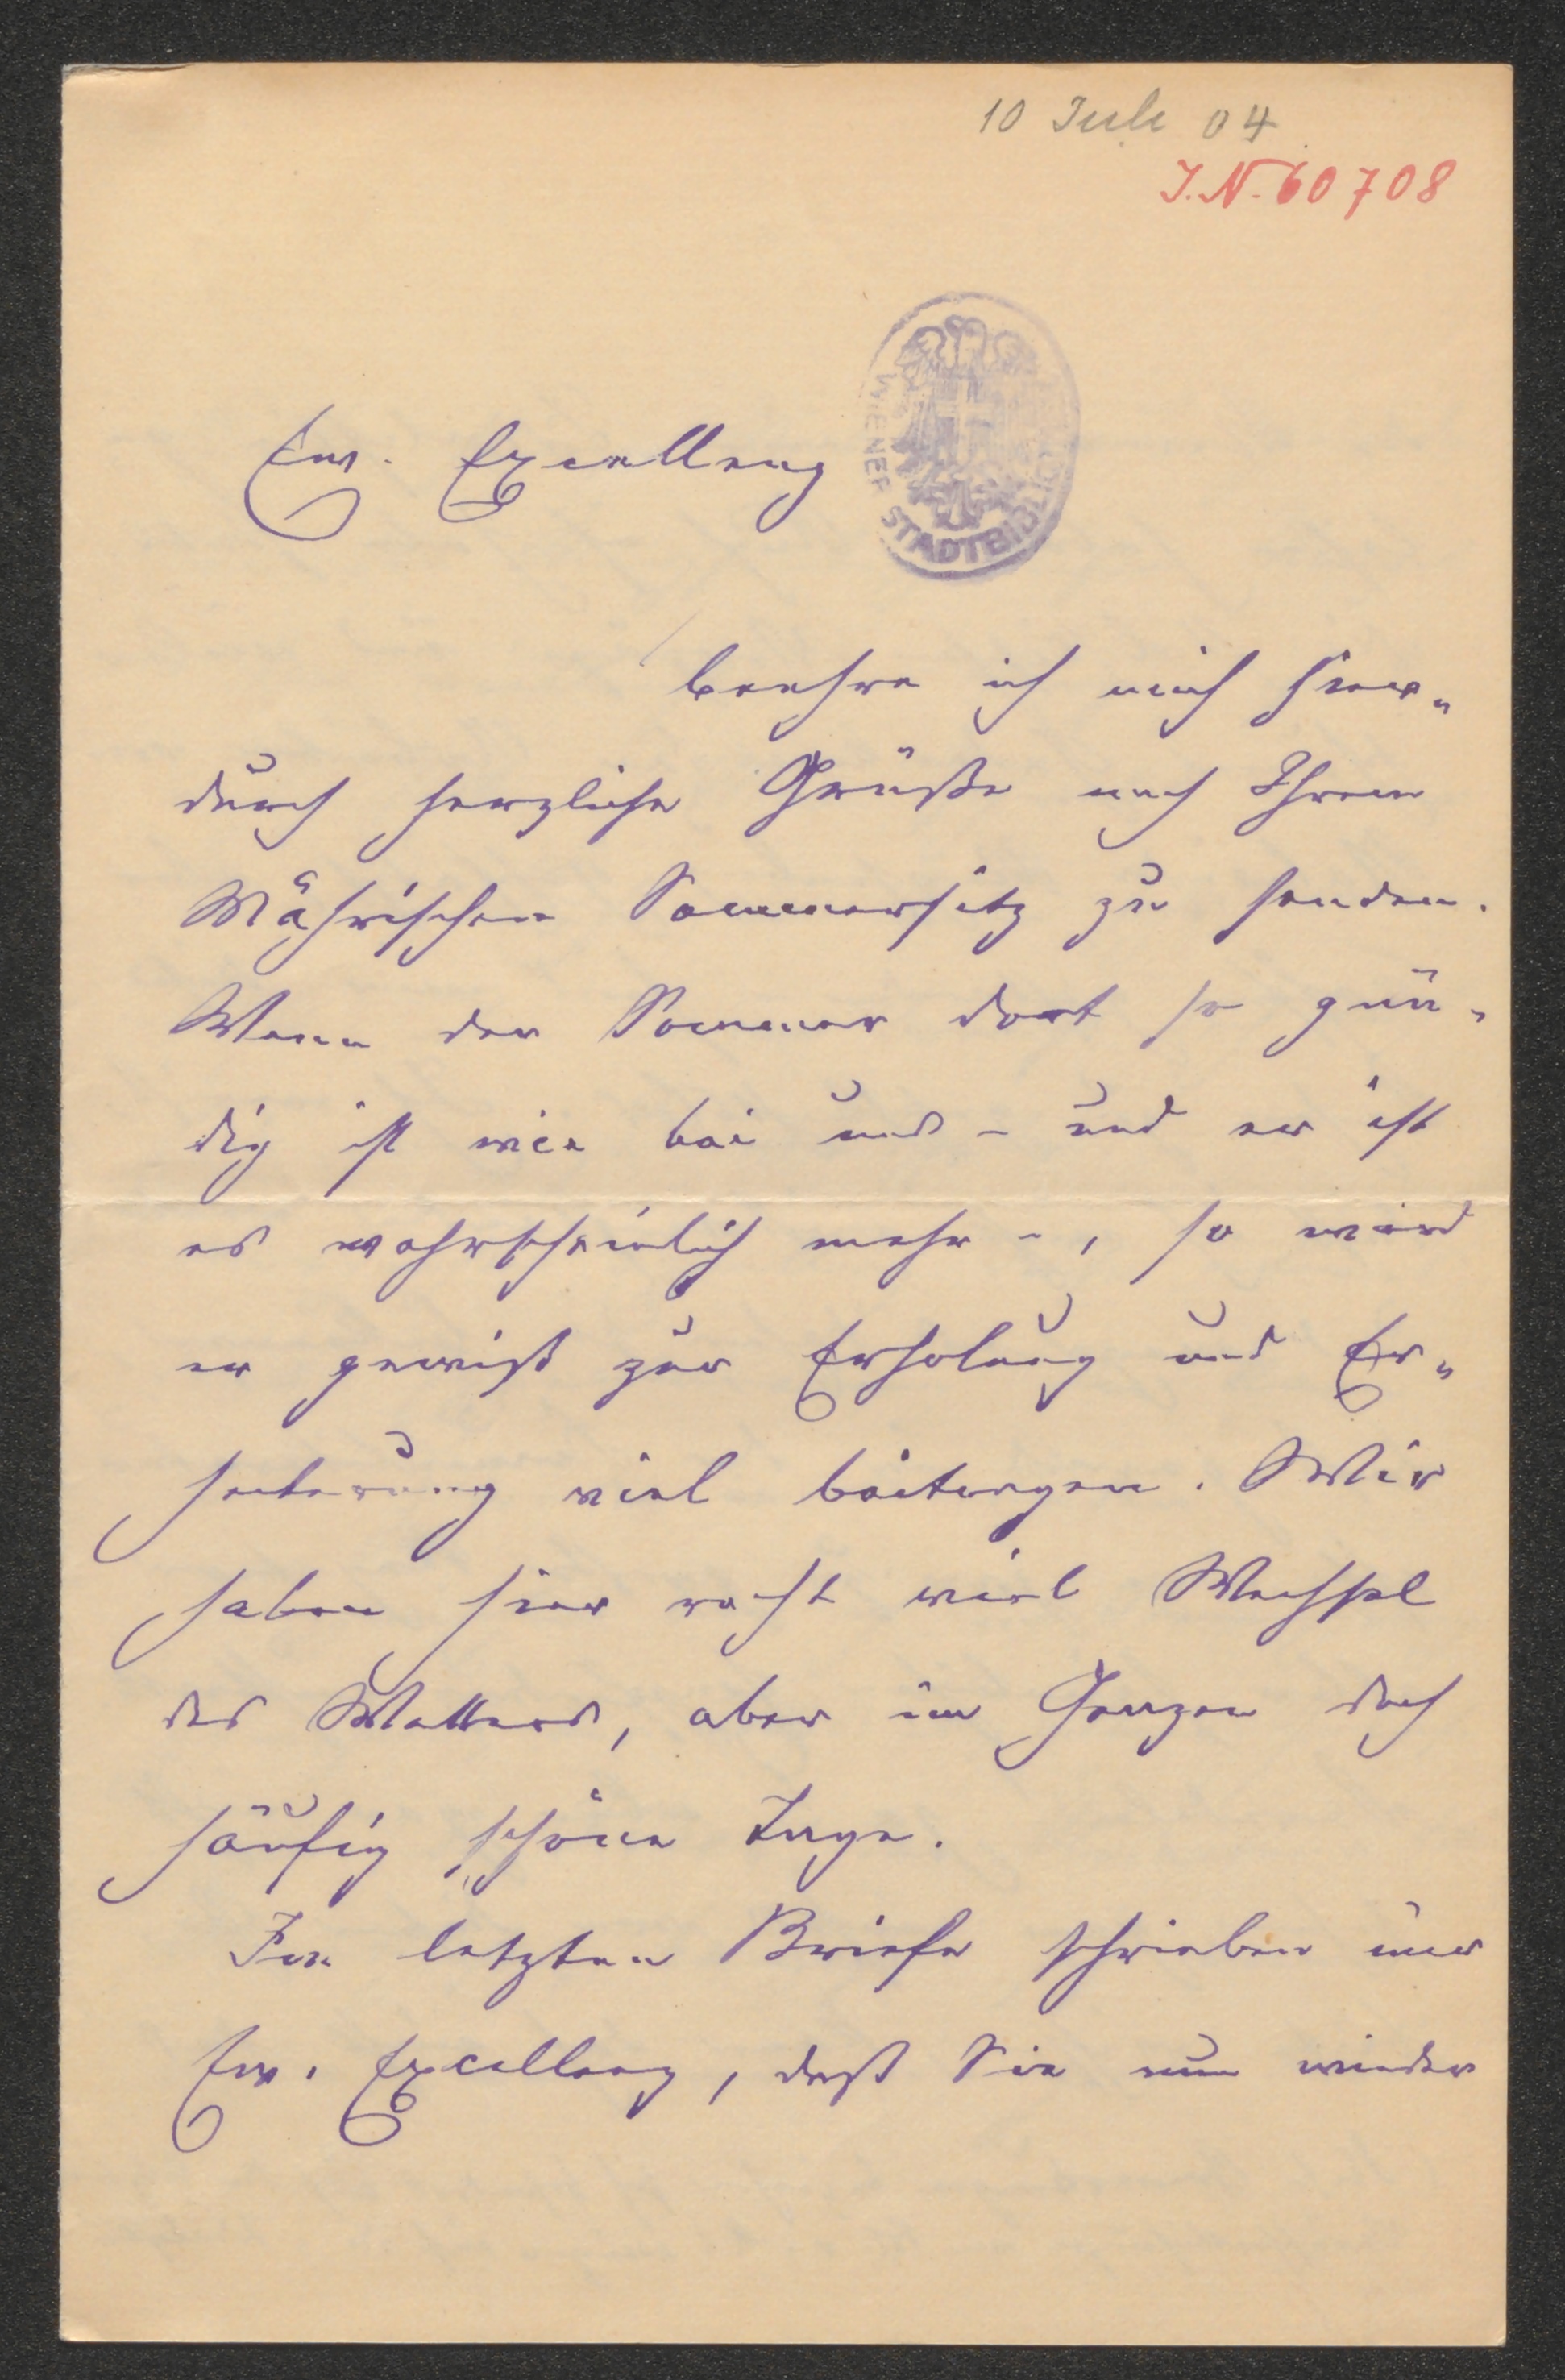 10 Juli 04
I.N. 60708
WIENER STADTBIBLIO
Ew. Excellenz
beehre ich mich hier„
durch herzliche Grüße nach Ihrem
Mährischen Sommersitz zu senden.
Wenn der Sommer dort so gnä„
dig ist wie bei uns – und er ist
es wahrscheinlich mehr –, so wird
er gewiß zur Erholung und Er„
heiterung viel beitragen. Wir
haben hier recht viel Wechsel
des Wetters, aber im Ganzen doch
häufig schöne Tage.
Im letzten Briefe schrieben mir
Ew. Excellenz, daß Sie nun wieder